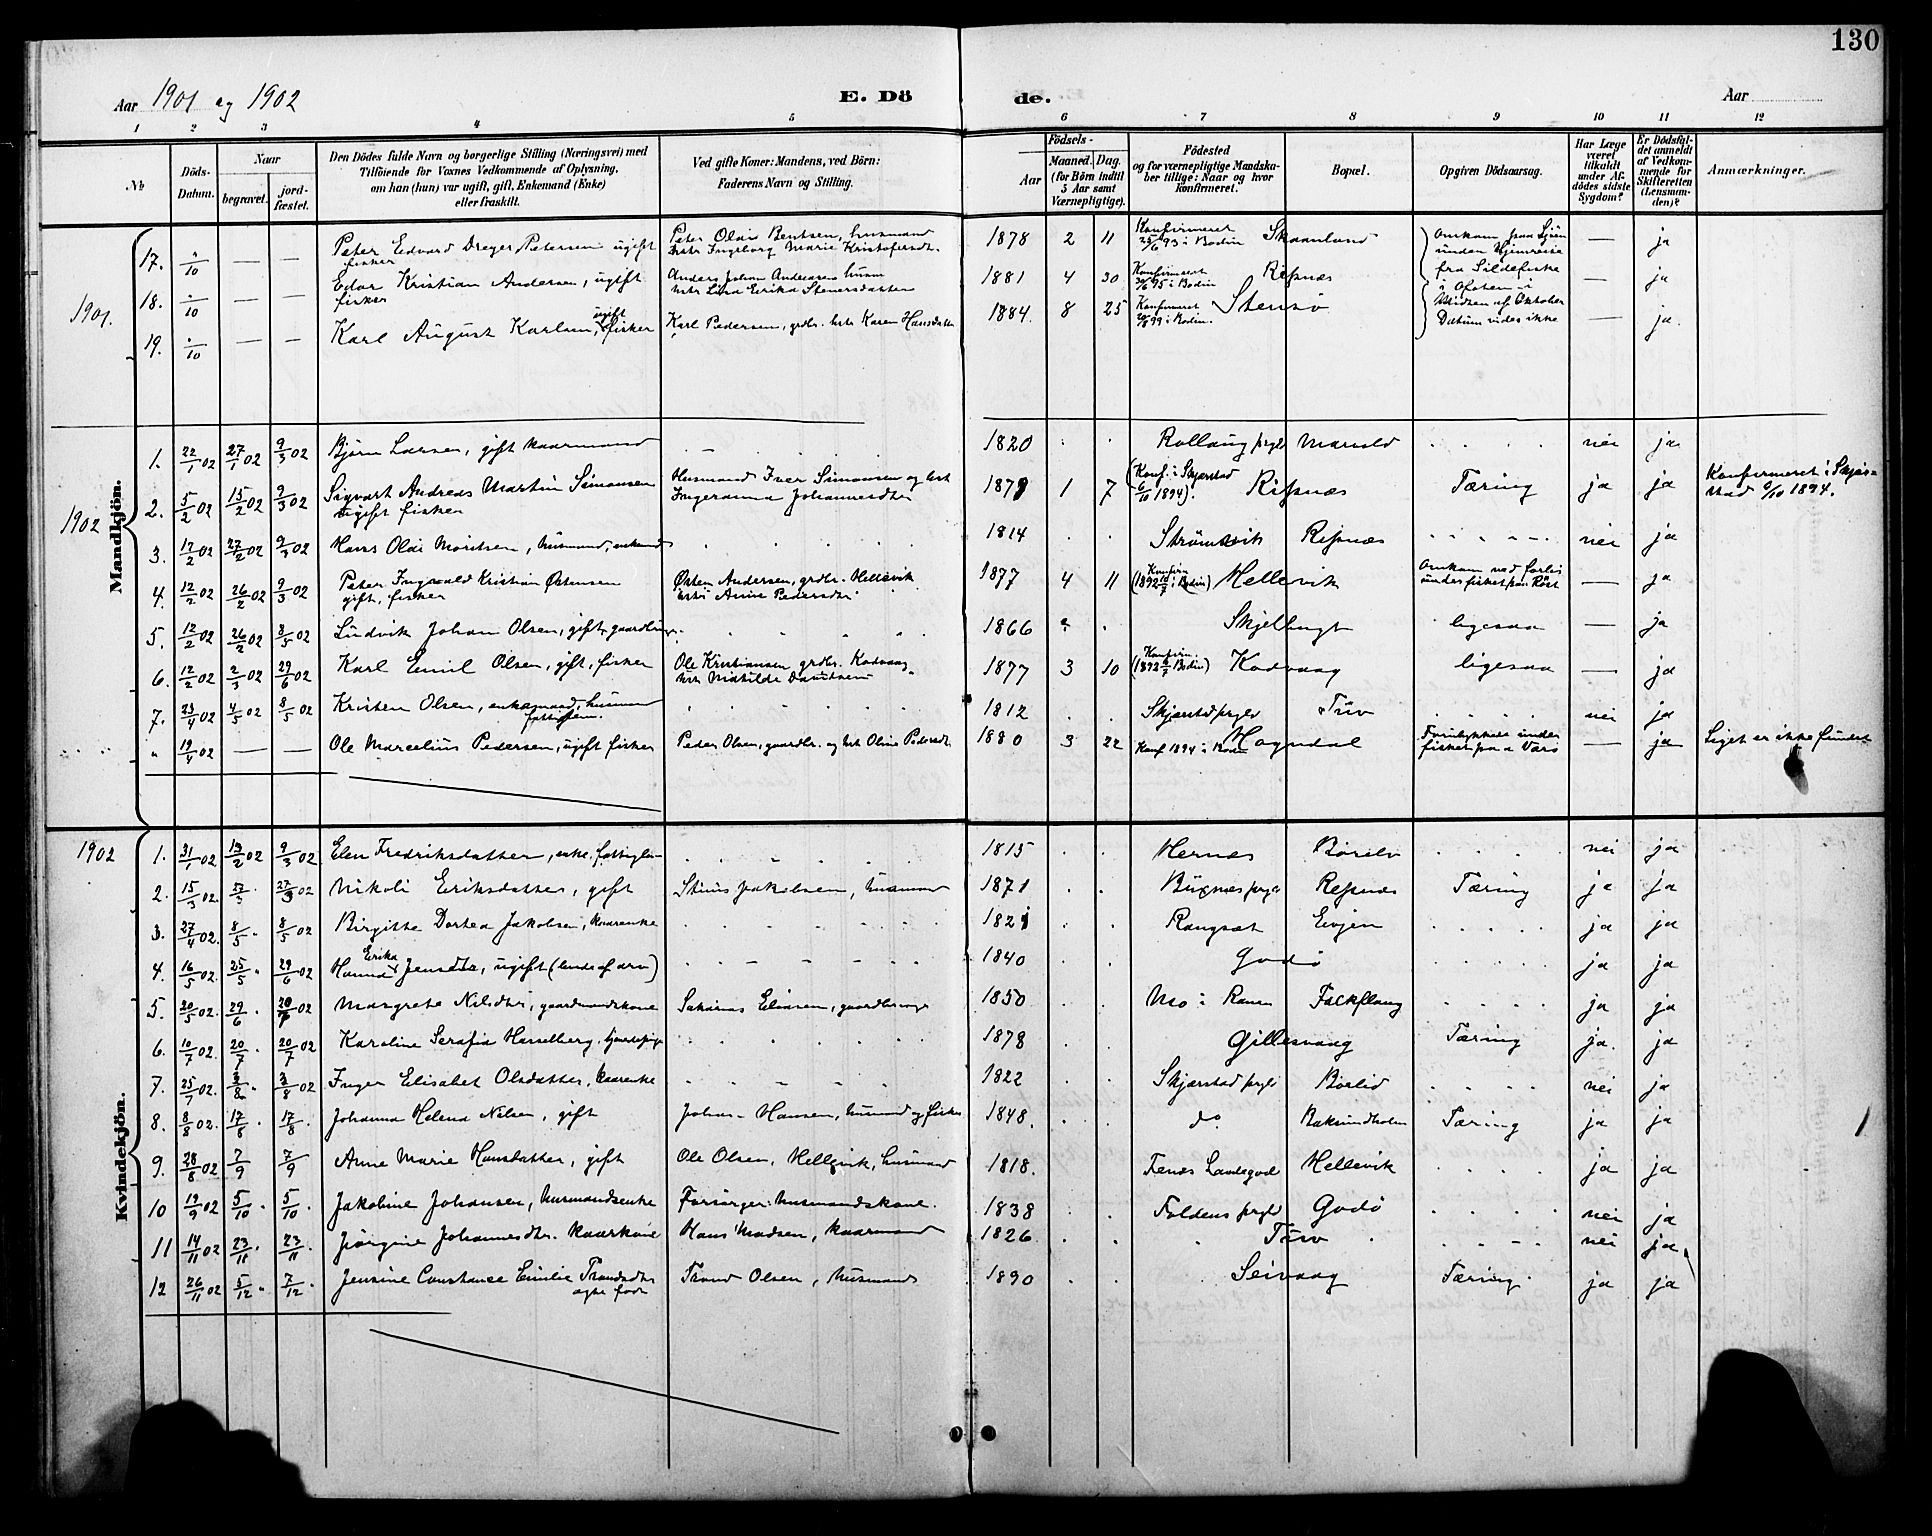 130
Aar 1901 og 1902 E. Dö de. Aar
1 2 3 4 5 6 7 8 9 10 11 12
No
Döds-Datum.
Naar
begravet.
jord-fæstet.
Den Dödes fulde Navn og borgerlige Stilling (Næringsvei) med
Tilföiende for Voxnes Vedkommende af Oplysning,
om han (hun) var ugift, gift, Enkemand (Enke)
eller fraskilt.
Ved gifte Koner: Mandens, ved Börn:
Faderens Navn og Stilling.
Födsels-
Aar
Maaned. Dag.
(for Börn indtil
5 Aar samt
Værnepligtige).
Födested
og for værnepligtige Mandska-
ber tillige: Naar og hvor
konfirmeret.
Bopæl.
Opgiven Dödsaarsag.
Har Læge
været
tilkaldt
under Af-
dödes sidste
Sygdom?
Er Dödsfal-
det anmeldt
af Vedkom-
mende for
Skifteretten
(Lensman-
den)?
Anmærkninger.
1901.
Mandkjön.
17. "/10 — — Peter Edvard Dreyer Petersen ugift fisker Peter Olai Bentsen, husmand hstr Ingeborg Marie Kristofersdt. 1878 2 11 Konfirmeret 25/6 93 i Bodin Skaanland — ja
18. "/10 — — Edor Kristian Andersen, ugift fisker Anders Johan Andersen husm hstr Lina Erika Stenersdatter 1881 4 30 Konfirmeret 30/6 95 i Bodin Ripnæs — ja
19. "/10 — — Karl August Karlsen, ugift fisker Karl Pedersen, grdbr. hstr Karen Hansdatter 1884. 8 25 Konfirmeret 20/8 99 i Bodin. Stensø — ja.
Omkom paa Sjöen
under Hjemreise
fra Sildefiske
i Ofoten i
Midten af Oktober
Datum vides ikke
1902
1. 22/1 02 27/1 02 9/3 02 Bjørn Larsen, gift kaarmand 1820 Rollaug prgld Marvold nei ja
2. 5/2 02 15/2 02 9/3 02 Sigvart Andreas Martin Simonsen ugift fisker Husmand Iver Simonsen og hst Ingeranna Johannesdtr 1879 1 7 (Konf. i Skjerstad 6/10 1894). Ripnæs Tæring ja ja Konfirmeret i Skjer-stad 6/10 1894.
3. 12/2 02 27/2 02 9/3 02 Hans Olai Moritsen, husmand, enkemd 1814 Strømsvik Ripnæs nei ja
4. 12/2 02 26/2 02 9/3 02 Peter Ingvald Kristian Østensen gift, fisker Østen Andersen, grdbr. Hellevik hstr Anne Pedersdtr 1877 4 11 Konfirm (1892 i Bodin) Hellevik Omkom ved forlis under fisket paa Röst — ja
5. 12/2 02 26/2 02 8/5 02 Ludvik Johan Olsen, gift, gaardbruger. 1866 Skjelbugt ligesaa — ja
6. 12/2 02 2/3 02 29/6 02 Karl Emil Olsen, gift, fisker Ole Kristiansen, grdbr. Kodvaag hstr Matilde Davidsen 1877 3 10 Konfirm. (1892 Bodin) Kodvaag ligesaa — ja
7. 23/4 02 4/5 02 8/5 02 Kristen Olsen, enkemand, husmand fattiglem. 1812 Skjerstad prgld Tuv nei ja
" 19/4 02 — — Ole Marcelius Pedersen, ugift fisker Peder Olsen, gaardbr. og hst Oline Pedersdt. 1880 3 22 Konf 1894 i Bodin Hogndal Forulykkede under fisket paa Værö — ja Liget er ikke fundet
1902
Kvindekjön.
1. 31/1 02 13/2 02 9/3 02 Elen Fredriksdatter, enke, fattiglem 1815 Hernes Börelv nei ja
2. 15/3 02 23/3 27/3 02 Nikoli Eriksdatter, gift Stinus Jakobsen, husmand 1871 Buxnæs prgld Ripnæs Tæring ja ja
3. 27/4 02. 8/5 8/5 02 Birgitte Dortea Jakobsen, kaarenke 1821 Rangsæt Evjen ja ja
4. 16/5 02. 25/5 " 29/6 02 Hanna Erika Jensdtr, ugift (lever af arv) 1840 Godø ja ja
5. 20/5 02. 29/6 20/7 02 Margrete Nilsdtr, gaardmandskone Sakarias Eliasen, gaardbruger 1850 Mo i Ranen Fackflaug ja ja
6. 10/7 02. 20/7 20/7 02 Karoline Serafia Hasselberg, tjenestepige 1878 Gillesvaag Tæring ja. ja
7. 25/7 02. 3/8 3/8 02 Inger Elisabet Olsdatter, kaarenke 1822 Skjærstad prgld Børlid nei ja
8. 8/8 02. 17/8 17/8 Johanna Helena Nilsen, gift Johan Hansen, husmand og fisker 1848. do Baksundholm Tæring ja ja
9. 28/8 02 7/9 7/9 Anne Marie Hansdatter, gift Ole Olsen, Hellevik, husmand 1818. Fenes Landego Hellevik ja ja
10 19/9 02 5/10 5/10 Jakobine Johansen, husmandsenke Forsørger: husmandskone. 1838 Foldens prgld Godø nei ja
11 14/11 02 23/11 23/11 Jørgine Johannesdtr. kaarkone Hans Madsen, kaarmand 1826 Tuv nei ja
12 26/11 02 5/12 7/12 Jensine Constance Emilie Trondsdtr ægte født Trond Olsen, husmand 1890 Seivaag Tæring ja ja